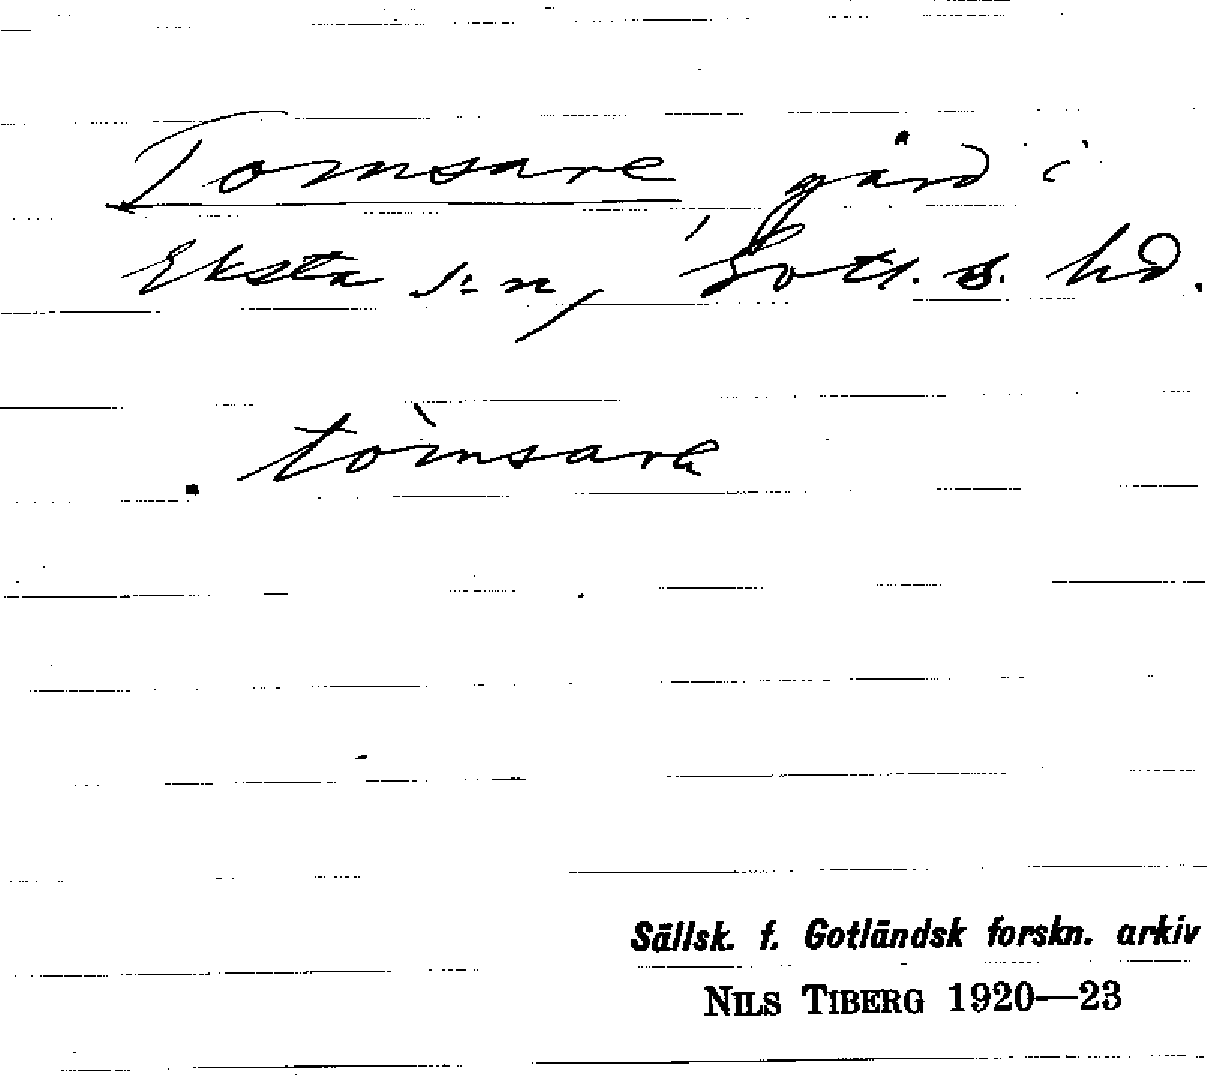 Tomsare gård i
Eksta s:n, Gotl. s. hd.
tòmsarɐ
Sällsk. f. Gotländsk forskn. arkiv
NILS TIBERG 1920—23